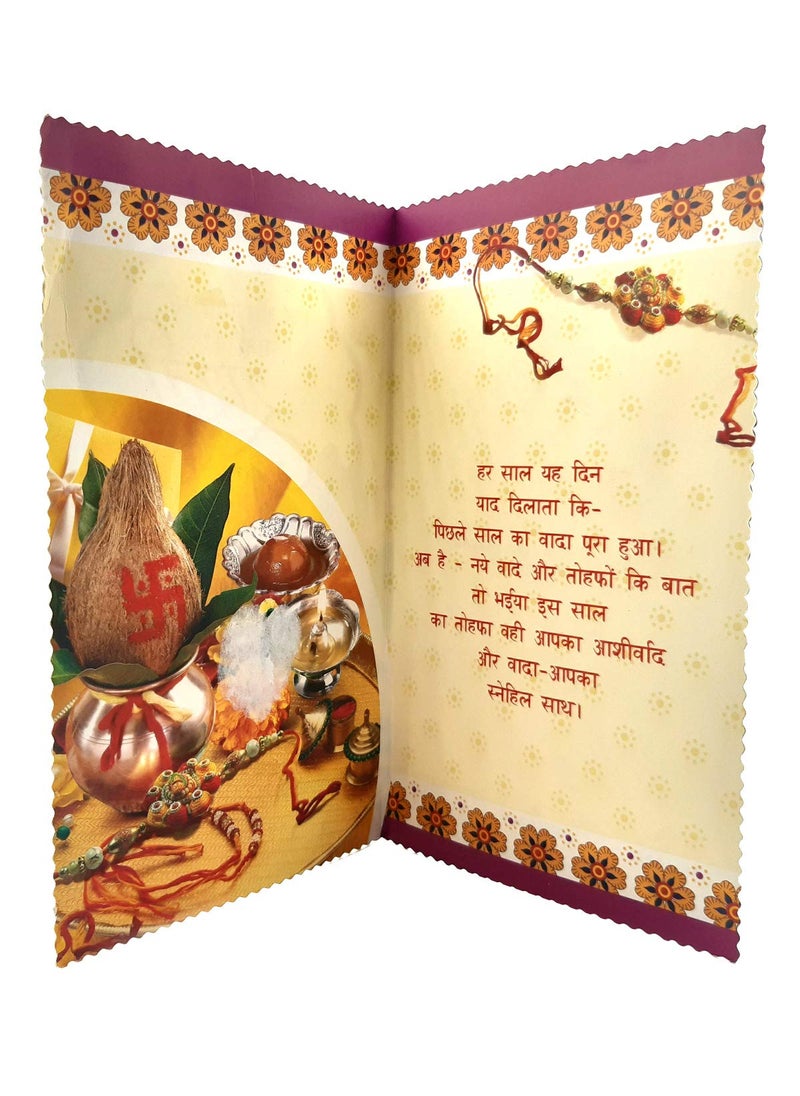 हर साल यह दिन
याद दिलाता कि-
पिछले साल का वादा पूरा हुआ।
अब है - नये वादे और तोहफों कि बात
तो भईया इस साल
का तोहफा वही आपका आशीर्वाद
और वादा-आपका
स्नेहिल साथ।